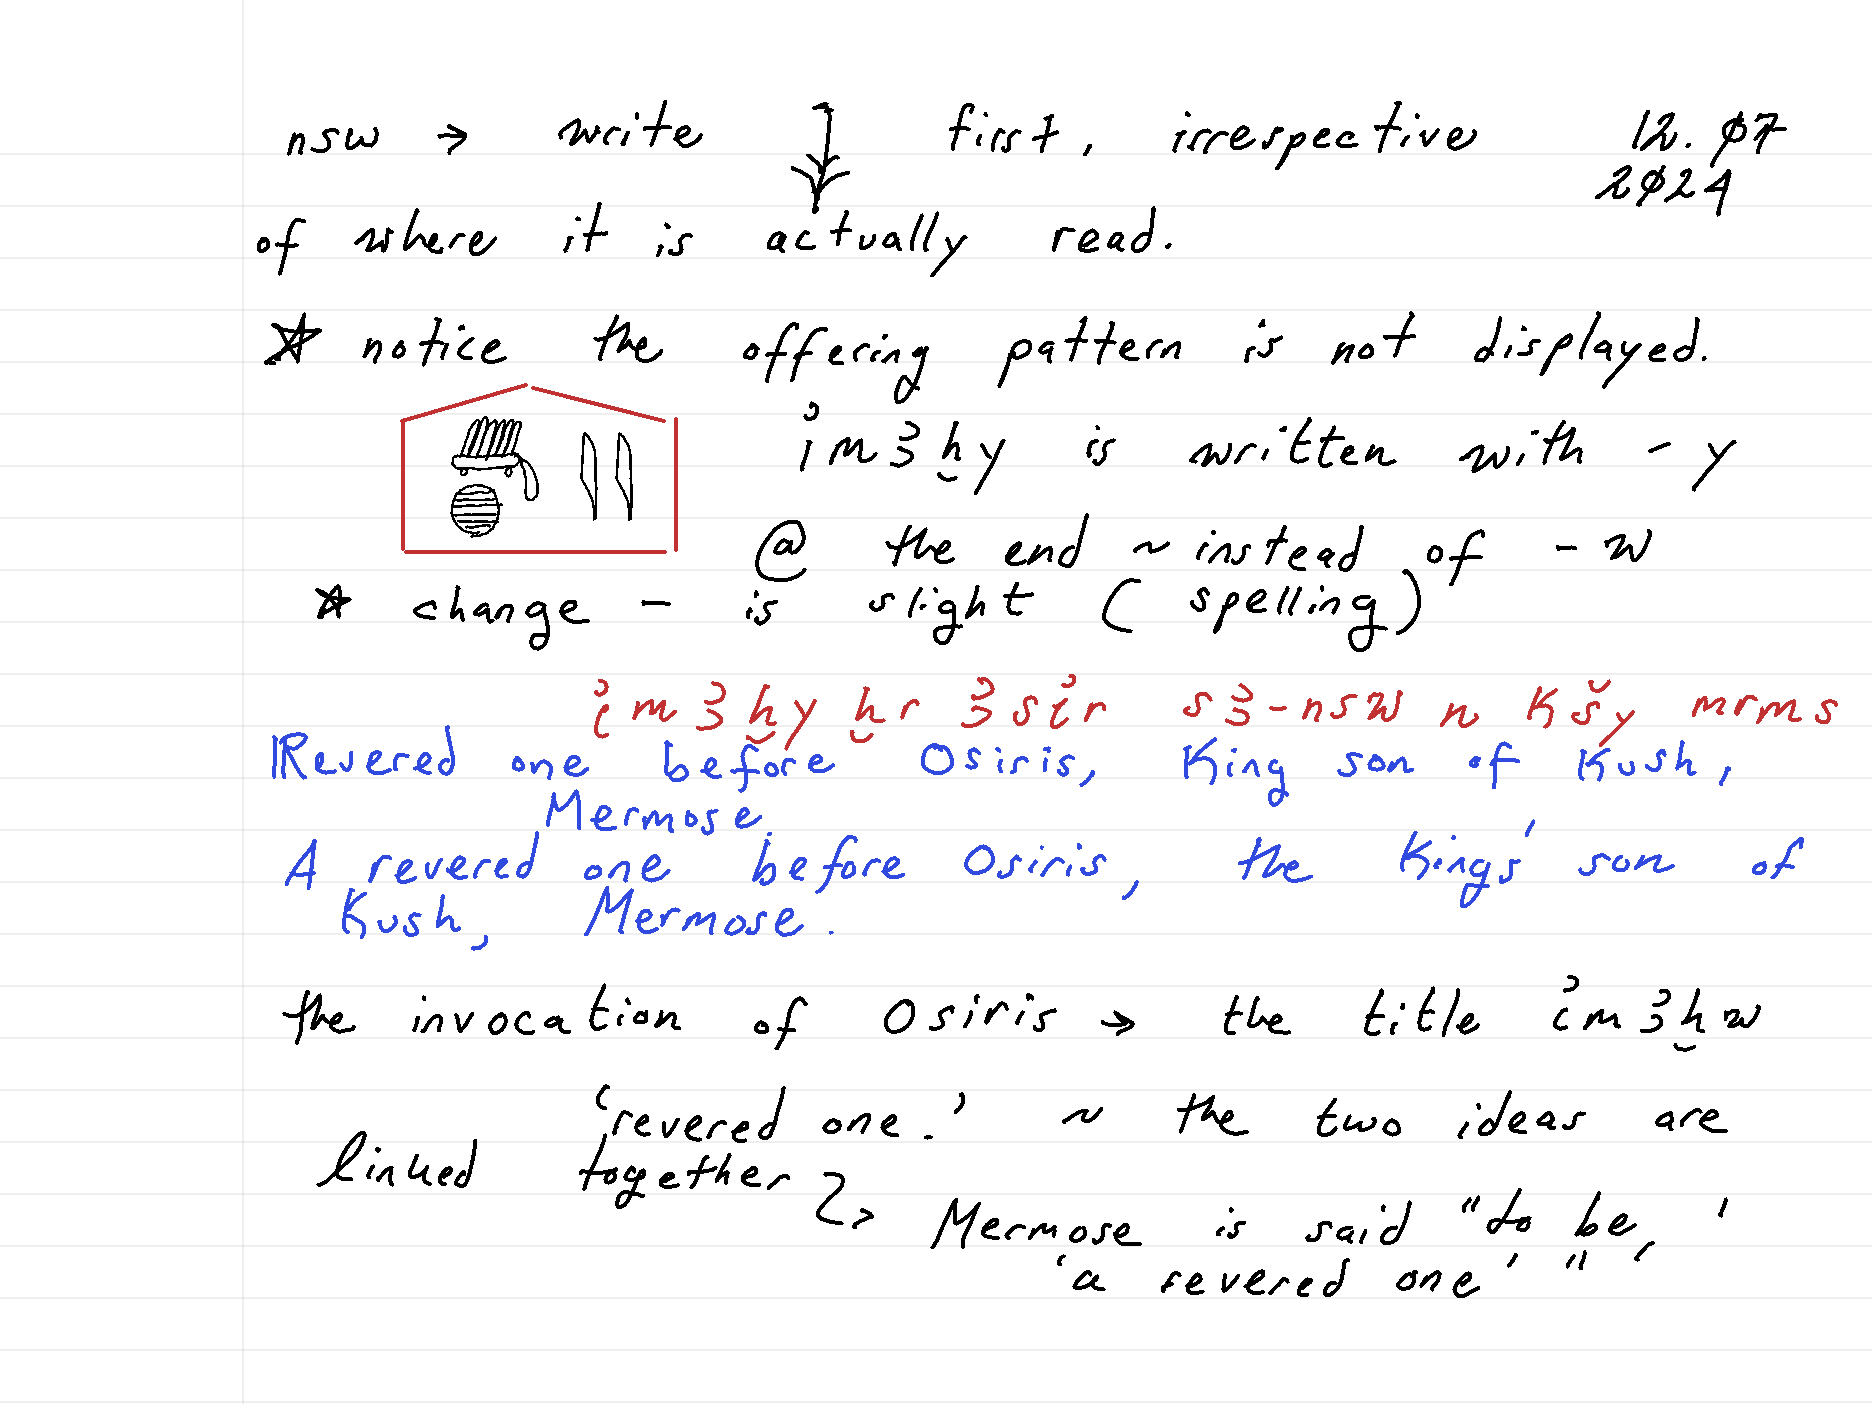 nsw → write first, irrespective 12.07
2024
of where it is actually read.
☆ notice the offering pattern is not displayed.
i͗mꜣḫy is written with - y
@ the end ~ instead of - w
☆ change - is slight (spelling)
i͗mꜣḫy ḫr ꜣsi͗r sꜣ-nsw n Kšy mrms
Revered one before Osiris, King son of Kush,
Mermose.
A revered one before Osiris, the Kings' son of
Kush, Mermose.
the invocation of Osiris → the title i͗mꜣḫw
'revered one.' ~ the two ideas are
linked together
↳ Mermose is said "to be, '
'a revered one' "